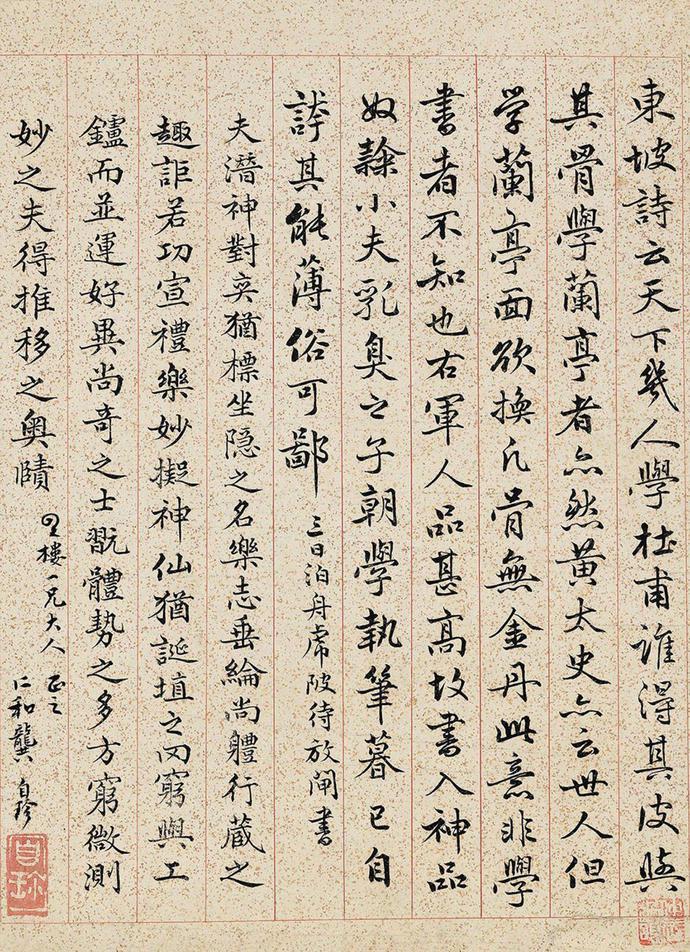 東坡詩云天下幾人學杜甫誰得其皮與
其骨學蘭亭者亦然黃太史亦云世人但
学蘭亭面欲換凡骨無金丹此意非學
書者不知也右軍人品甚高故書入神品
奴隸小夫乳臭之子朝學執筆暮已自
誇其能薄俗可鄙 三日泊舟虎陂待放閘書
夫潛神對奕猶標坐隐之名樂志垂綸尚體行藏之
趣詎若功宣禮樂妙擬神仙猶埏埴之罔窮與工
鑪而並運好異尚奇之士翫體勢之多方窮微測
妙之夫得推移之奧賾
樓一兄大人 正之
仁和龔自珍
自珍